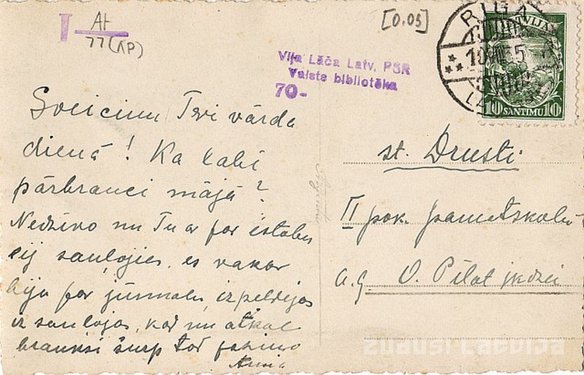 At
77 (AP)
[0.05]
Viļa Lāča Latv. PSR
Valsts bibliotēka
70-
RIGA
LATVIJA
10 SANTIMU 10
Sveicinu Tevi vārda
dienā! Ka labi
pārbrauci mājā?
Nedzīvo nu Tu ar for istabu
ej sauļojies, es vakar
biju jūrmalu, izpeldējos
iz sauļojos, kad nu atkal
brauksi šurp
Anna
st. Drusti
II pok. pamatskolu
a.g O. Pilat
ZUDUSI LATVIJA